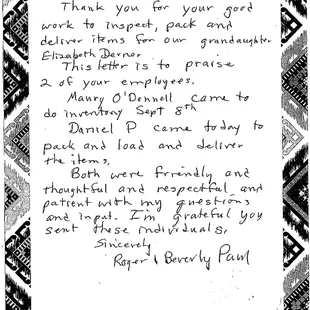 Thank you for your good
work to inspect, pack and
deliver items for our grandaughter
Elizabeth Derner
This letter is to praise
2 of your employees.
Maury O'Donnell came to
do inventory Sept 8th
Daniel P came today to
pack and load and deliver
the items,
Both were friendly and
thoughtful and respectful and
patient with my questions
and input. I'm grateful you
sent these individuals,
Sincerely
Roger & Beverly Paul